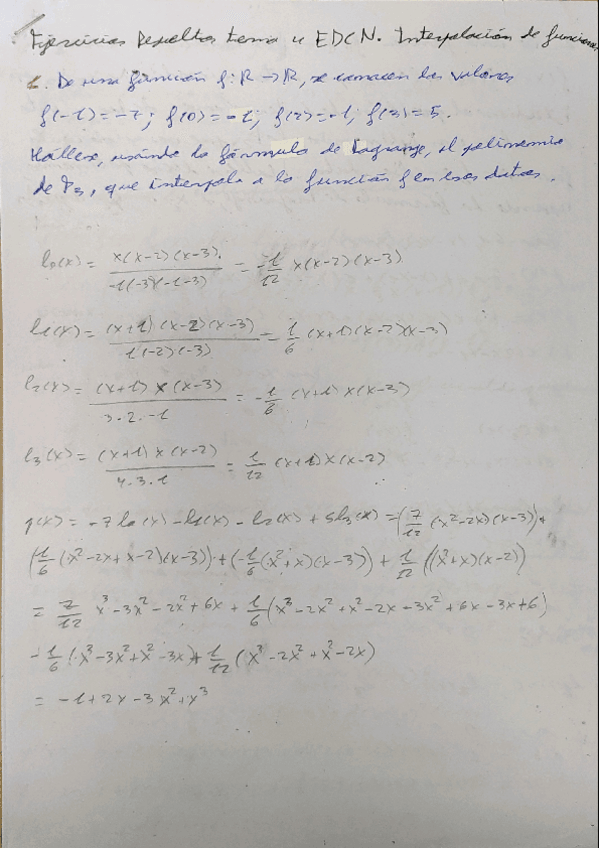 Ejercicios Resueltos tema 4 EDCN. Interpolación de funciones
1. De una función f: ℝ → ℝ, se conocen los valores
f(-1) = -7; f(0) = -1; f(2) = -1; f(3) = 5.
Hállese, usando la fórmula de Lagrange, el polinomio
de P3, que interpola a la función f en esos datos.
l0(x) = x(x-2)(x-3) / -1(-3)(-1-3) = -1/12 x(x-2)(x-3)
l1(x) = (x+1)(x-2)(x-3) / 1(-2)(-3) = 1/6 (x+1)(x-2)(x-3)
l2(x) = (x+1) x (x-3) / 3·2·-1 = -1/6 (x+1) x (x-3)
l3(x) = (x+1) x (x-2) / 4·3·1 = 1/12 (x+1) x (x-2)
q(x) = -7 l0(x) - l1(x) - l2(x) + 5 l3(x) = (7/12 (x²-2x)(x-3)) +
(1/6 (x²-2x+x-2)(x-3)) + (-1/6 (x²+x)(x-3)) + 1/12 ((x²+x)(x-2))
= 7/12 x³-3x²-2x²+6x + 1/6 (x³-2x²+x²-2x-3x²+6x-3x+6)
-1/6 (x³-3x²+x²-3x) + 1/12 (x³-2x²+x²-2x)
= -1+2x-3x²+x³